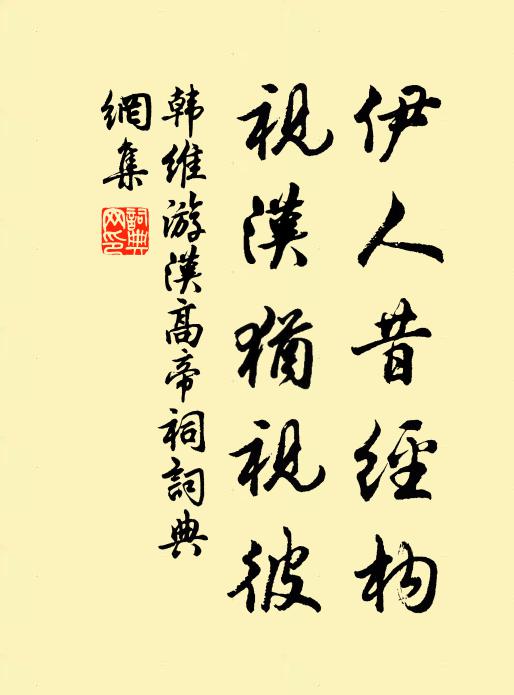 伊人昔經构
視漢猶視彼
韩維游漢高帝祠詞典
網集
詞典网印